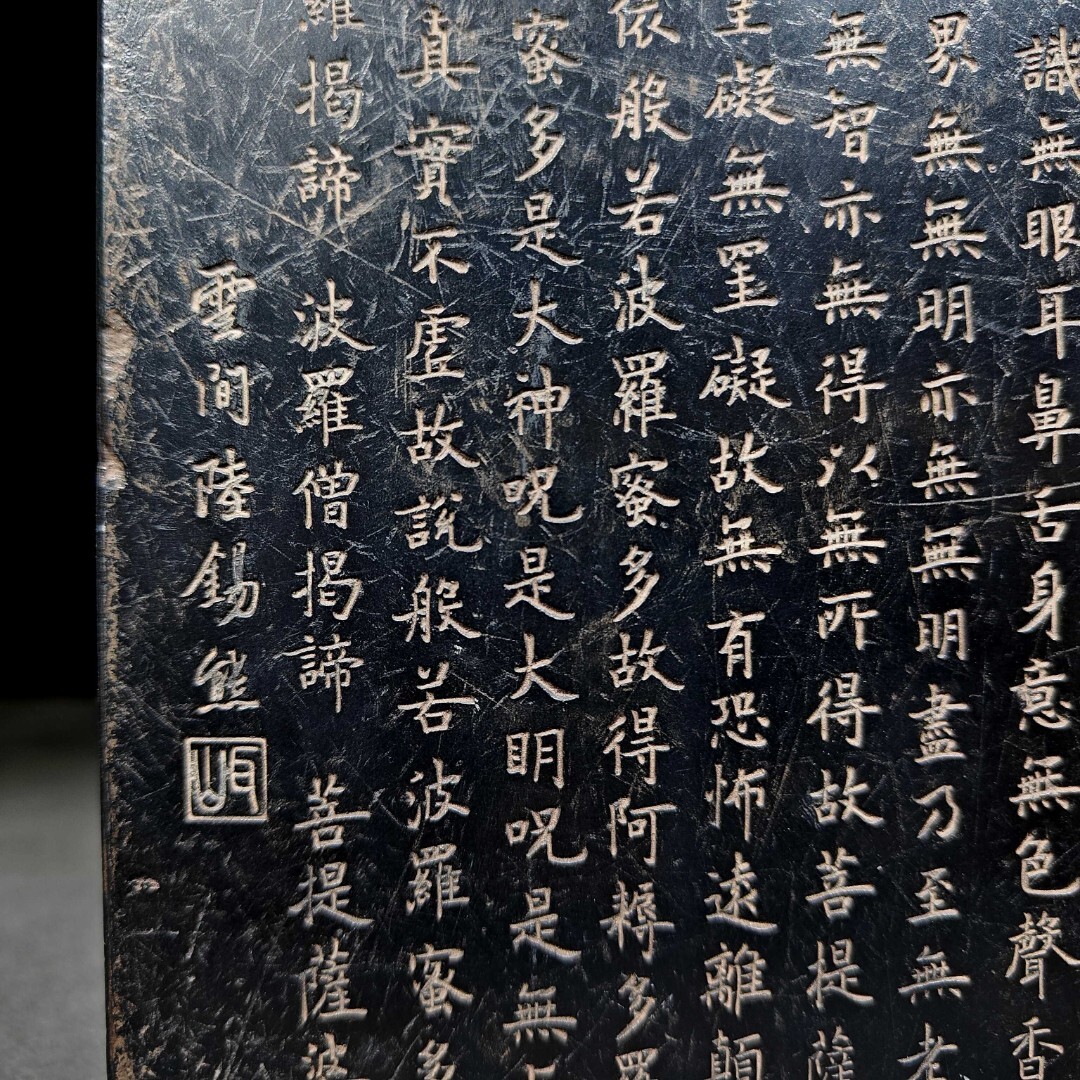 識無眼耳鼻舌身意無色聲香
界無無明亦無無明盡乃至無老
無智亦無得以無所得故菩提薩
罣礙無罣礙故無有恐怖遠離顛
依般若波羅蜜多故得阿耨多羅
蜜多是大神呪是大明呪是無
真實不虛故說般若波羅蜜多
羅揭諦 波羅僧揭諦 菩提薩婆
雲間陸錫熊